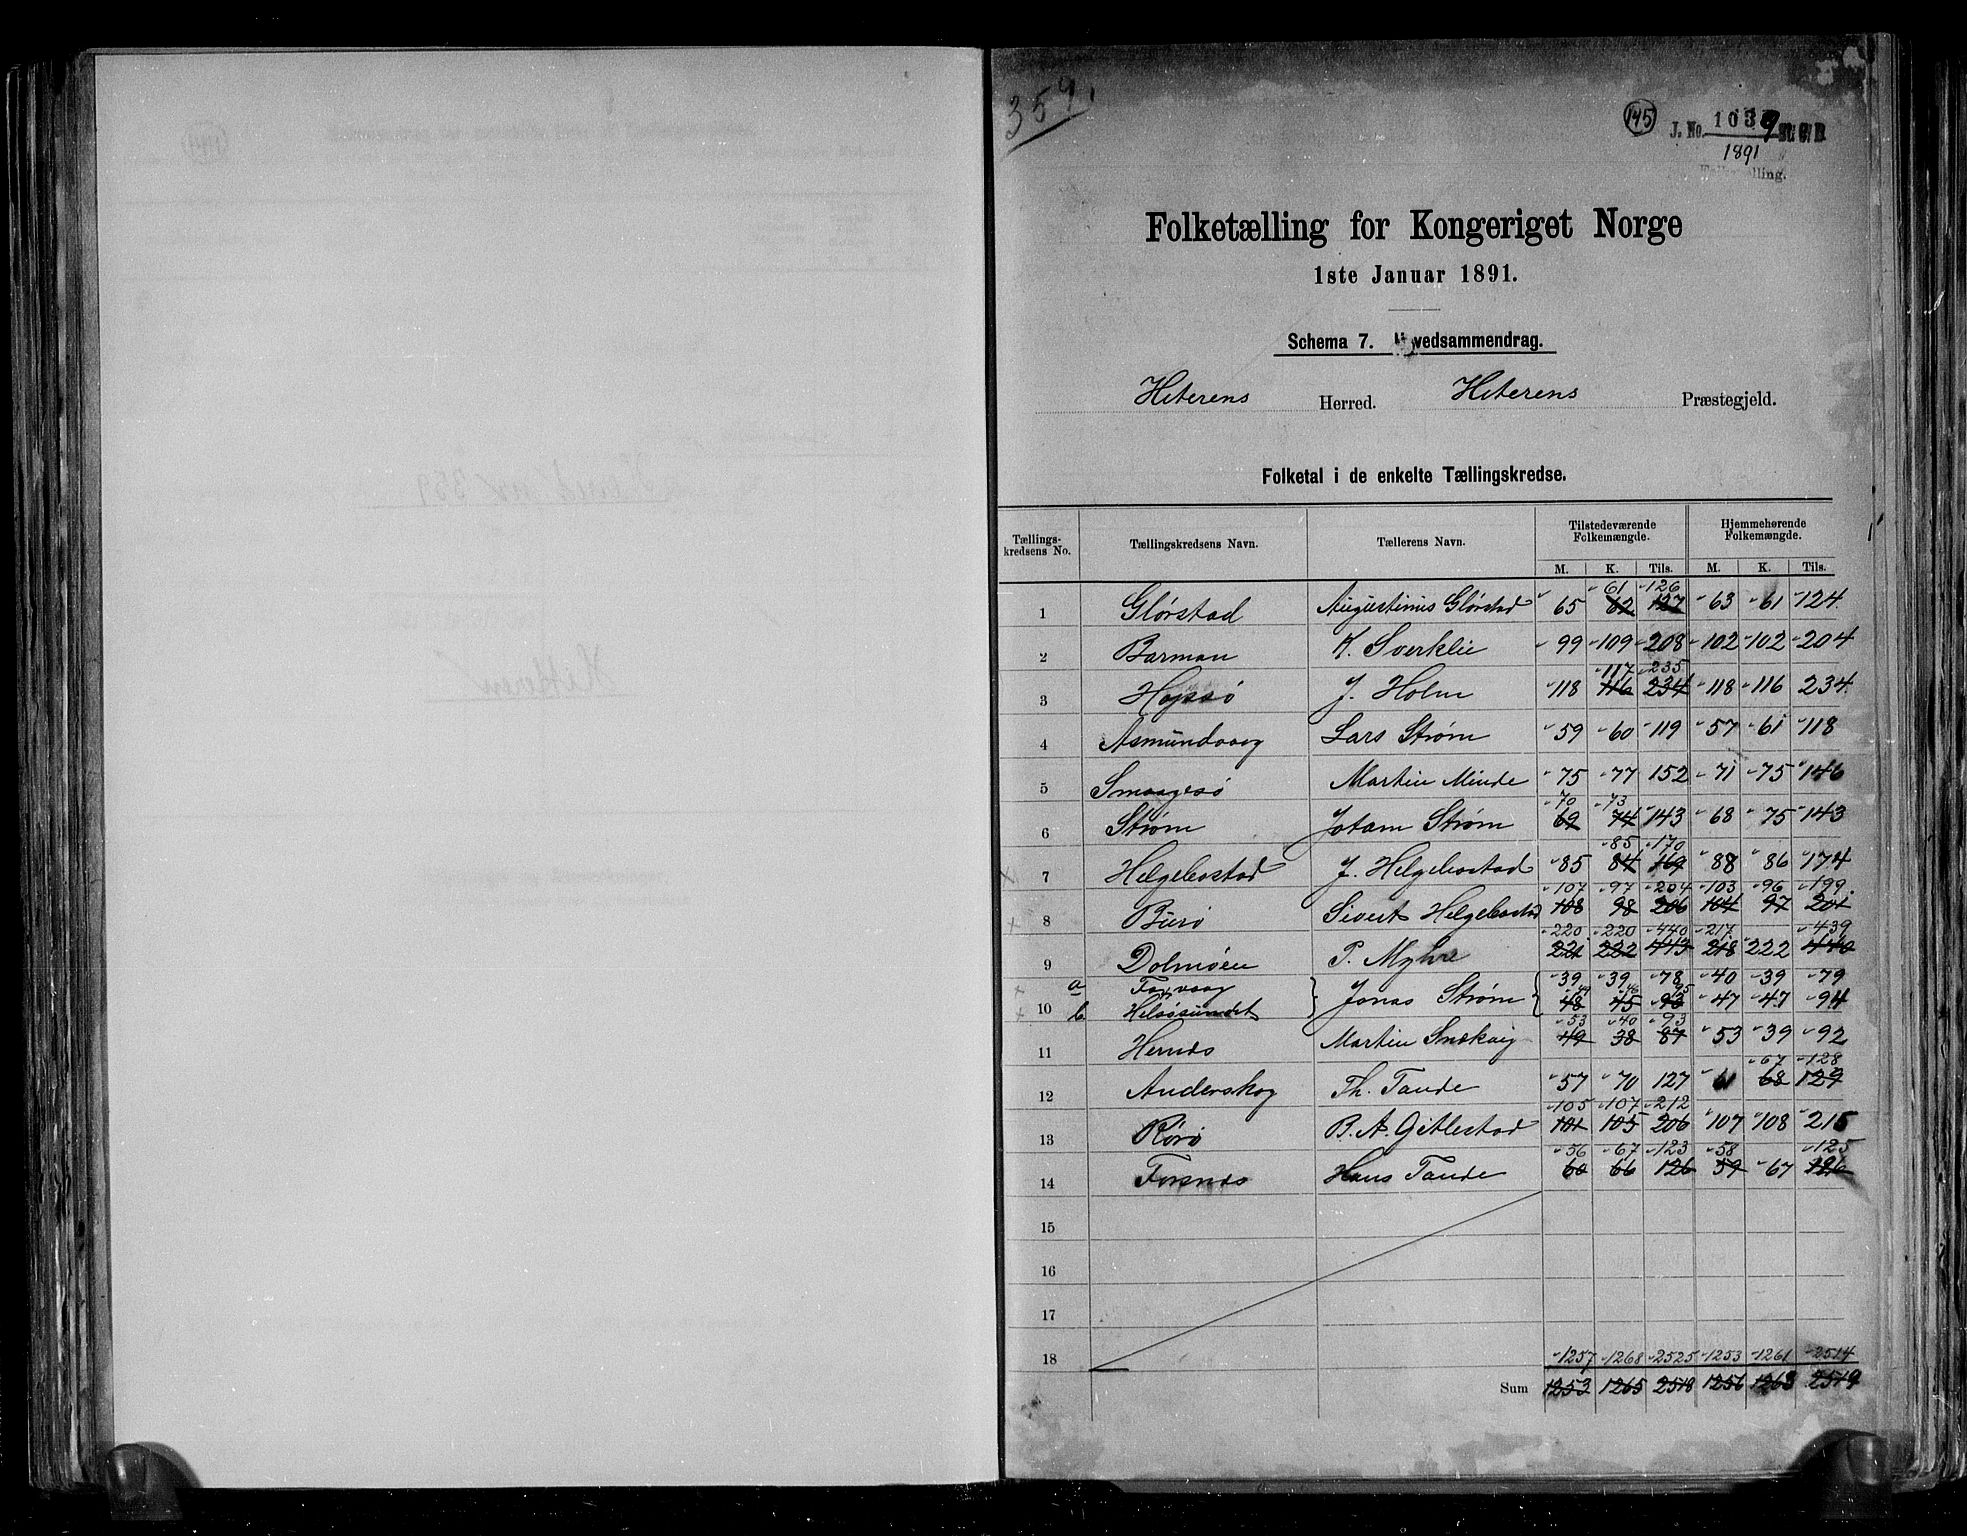 359.
145
J. No. 1039
1891
Folketælling for Kongeriget Norge
1ste Januar 1891.
Schema 7. Hovedsammendrag.
Hiterens Herred. Hiterens Præstegjeld.
Folketal i de enkelte Tællingskredse.
Tællings-kredsens No. Tællingskredsens Navn. Tællerens Navn. Tilstedeværende Folkemængde. Hjemmehørende Folkemængde.
M. K. Tils. M. K. Tils.
61 126
1 Glørstad Augustinus Glørstad 65 62 127 63 61 124.
2 Barman K. Sverklie 99 109 208 102 102 204
117 235
3 Hopsø J. Holm 118 116 234 118 116 234.
4 Asmundvaag Lars Strøm 59 60 119 57 61 118
5 Smaagesø Martin Minde 75 77 152 71 75 146
70 73
6 Strøm Jotam Strøm 69 74 143 68 75 143
85 170
7 Helgebostad J. Helgebostad 85 84 169 88 86 174
107 97 204 103 96 199.
8 Burø Sivert Helgebostad 108 98 206 104 97 201
220 220 440 217 439
9 Dolmøen P. Myhre 221 222 443 218 222 440
a Faxvaag 39 39 78 40 39 79
10 b Helsøsundet Jonas Strøm 48 45 93 47 47 94
53 40 93
11 Hernæs Martin Snekvig 49 38 87 53 39 92
67 128
12 Anderskog Th. Tande 57 70 127 61 68 129
105 107 212
13 Rørø B. A. Gittlestad 101 105 206 107 108 215
56 67 123 58 125
14 Forsnæs Hans Tande 60 66 126 59 67 126
15
16
17
18 1257 1268 2525 1253 1261 2514
Sum 1253 1265 2518 1256 1263 2519